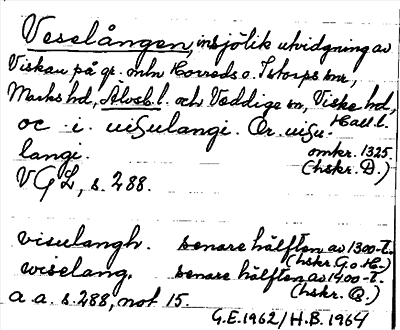 Veselången, insjölik utvidgning av
Viskan på gr. mln Horreds o. Istorps snr,
Marks hd, Älvsb. l. och Veddige sn, Viske hd,
Hall. l.
oc · i · uiSulangi. Or. uiSu-
langi. omkr. 1325.
(hskr. D.)
VGL, s. 288.
visulangh. senare hälften av 1300-t.
(hskr. G. o. H.)
wiselang. senare hälften av 1400-t.
(hskr. Q.)
a a. s. 288, not 15.
G.E. 1962/H.B. 1964